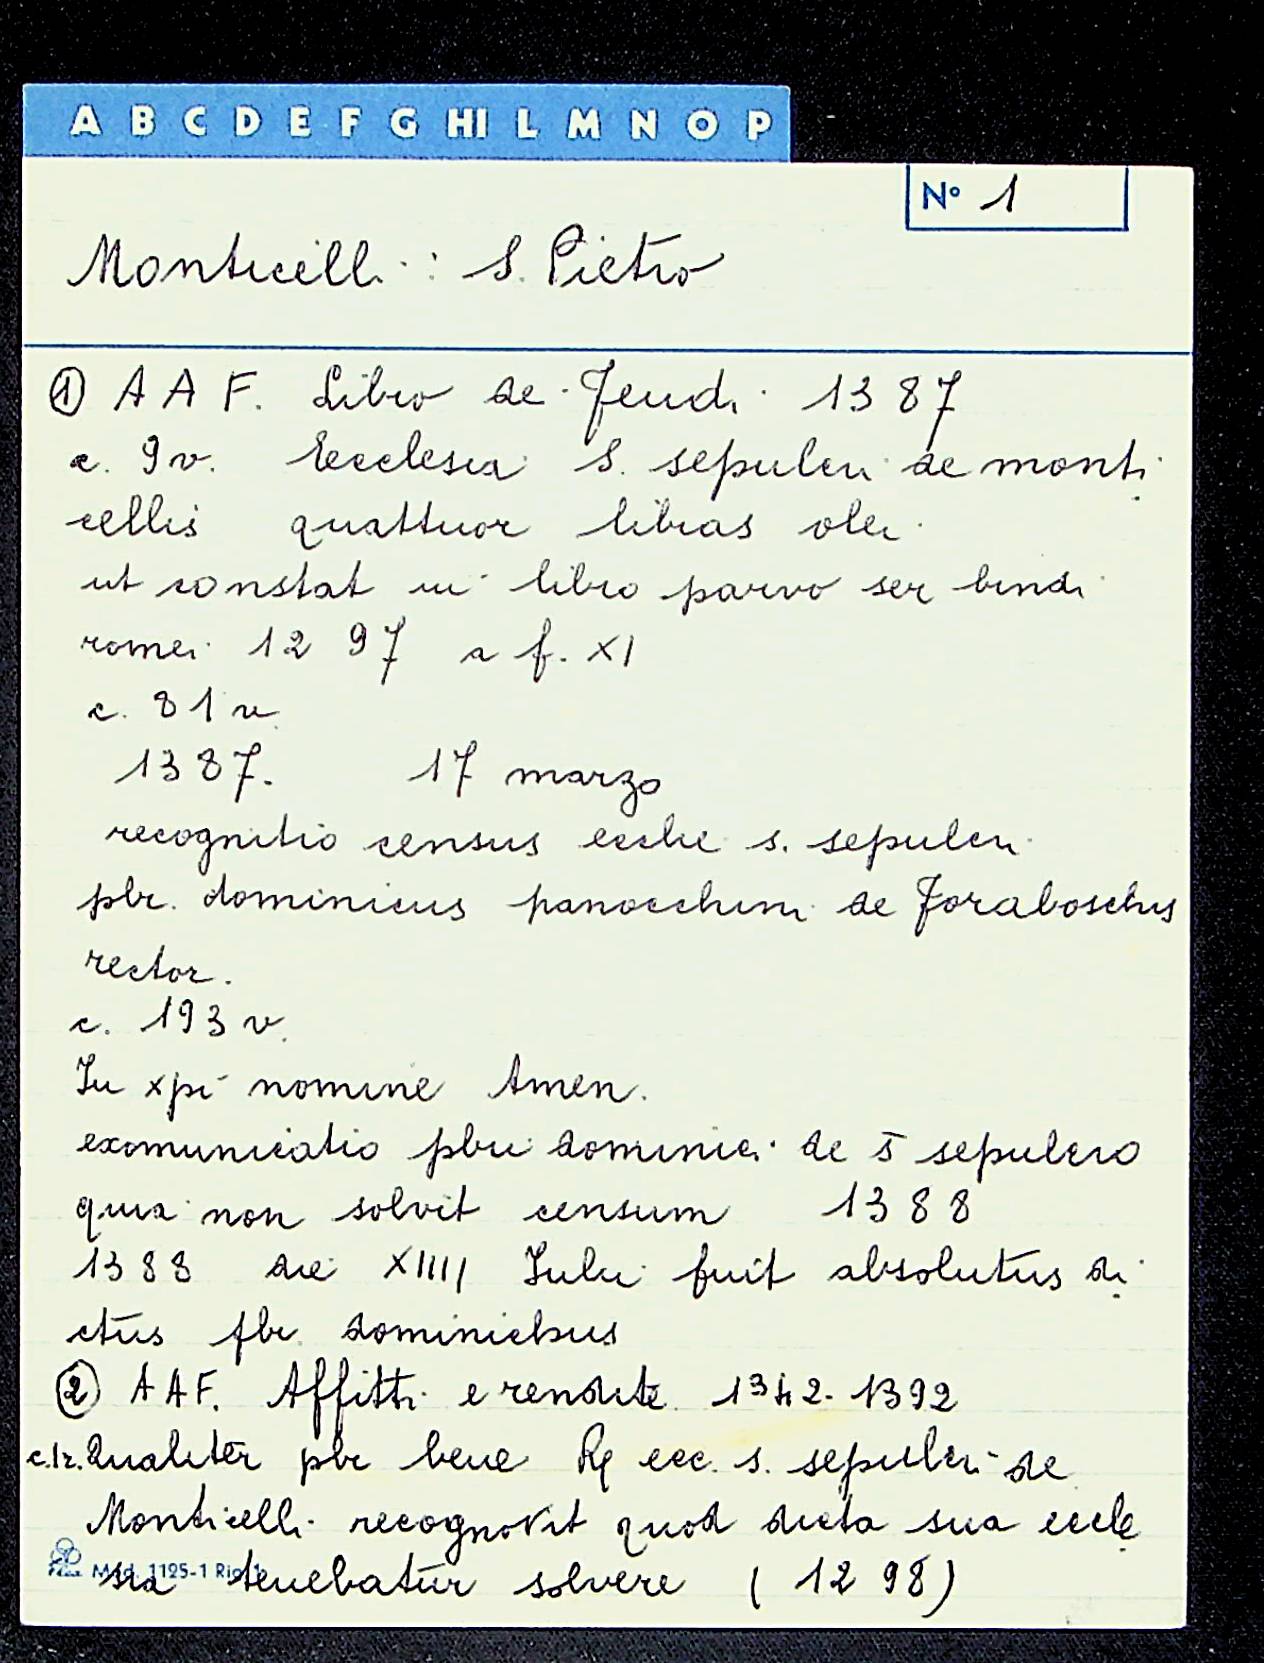 A B C D E F G HI L M N O P
N° 1
Monticelli : S. Pietro
① A A F. Libro de Feudi 1387
c. 9 v. Ecclesia S. sepulcri de monti
cellis quattuor libras olei
ut constat in libro parvo ser bindi
romei 1297 a f. XI
c. 81 v
1387. 17 marzo
recognitio census ecclie s. sepulcri
pbr. dominicus panocchini de Foraboschis
rector.
c. 193 v.
In xpi nomine Amen.
exomunicatio pbri dominici de S sepulcro
quia non solvit censum 1388
1388 die XIIII Iulii fuit absolutus di
ctus pbr dominichus
② A A F. Affitti e rendite 1342-1392
c.1r. Qualiter pbr bene R ecc. s. sepulcri de
Monticelli recognovit quod dicta sua eccle
Mod. 1125-1 Rig. 1
sia tenebatur solvere (1298)